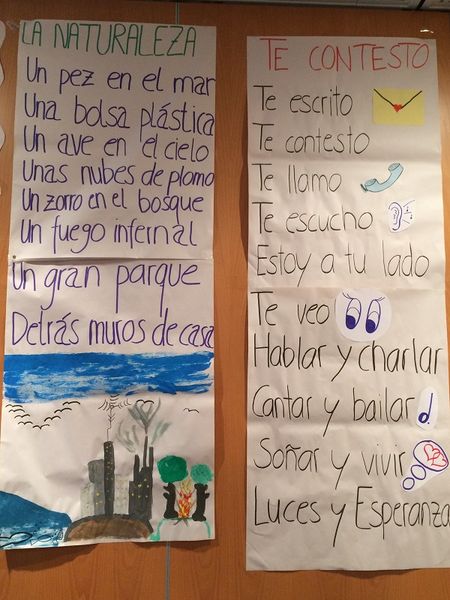 LA NATURALEZA
Un pez en el mar
Una bolsa plástica
Un ave en el cielo
Unas nubes de plomo
Un zorro en el bosque
Un fuego infernal
Un gran parque
Detrás muros de casa
TE CONTESTO
Te escrito
Te contesto
Te llamo
Te escucho
Estoy a tu lado
Te veo
Hablar y charlar
Cantar y bailar
Soñar y vivir
Luces y Esperanza